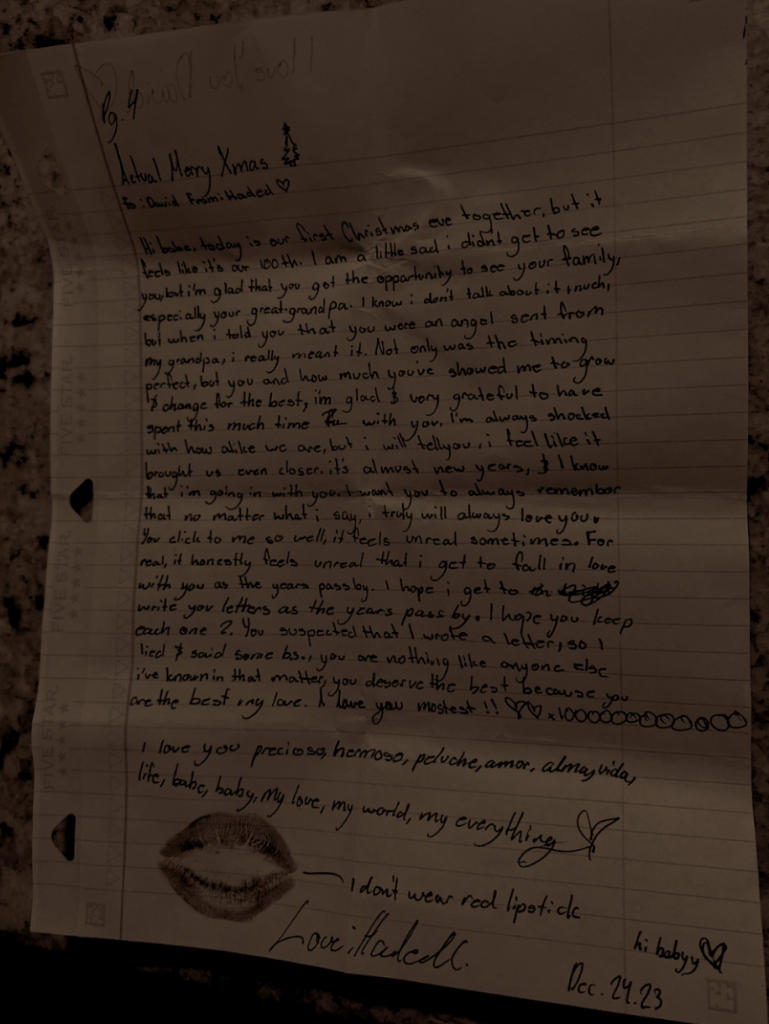 I love You David
Pg. 4
Actual Merry Xmas
To: David From: Haded ♡
Hi babe, today is our first Christmas eve together, but it
feels like it's our 100th. I am a little sad i didn't get to see
you, but i'm glad that you got the opportunity to see your family,
especially your great-grandpa. I know i don't talk about it much,
but when i told you that you were an angel sent from
my grandpa, i really meant it. Not only was the timing
perfect, but you and how much you've showed me to grow
& change for the best, im glad & very grateful to have
spent this much time with you. I'm always shocked
with how alike we are, but i will tell you, i feel like it
brought us even closer. it's almost new years, & I know
that i'm going in with you. I want you to always remember
that no matter what i say, i truly will always love you.
You click to me so well, it feels unreal sometimes. For
real, it honestly feels unreal that i get to fall in love
with you as the years pass by. I hope i get to
write you letters as the years pass by. I hope you keep
each one 2. You suspected that I wrote a letter, so I
lied & said some bs., you are nothing like anyone else
i've known in that matter, you deserve the best because you
are the best my love. I love you mostest !! ♡♡ x 1000000000000
I love you precioso, hermoso, peluche, amor, alma, vida,
life, babe, baby, my love, my world, my everything ♡
I don't wear red lipstick
Love: Haded C.
hi babyy ♡
Dec. 24. 23
FIVE STAR
FIVE STAR
FIVE STAR